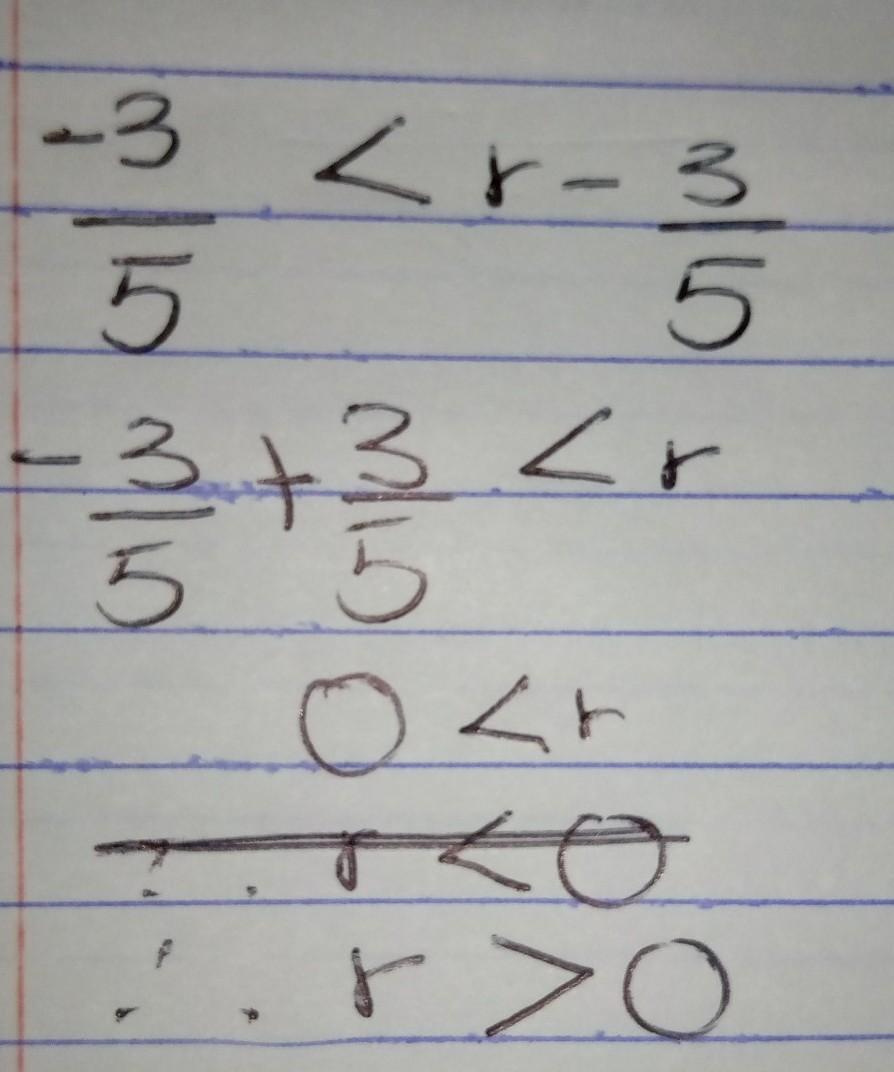 -3/5 < r - 3/5
-3/5 + 3/5 < r
0 < r
∴ r < 0
∴ r > 0